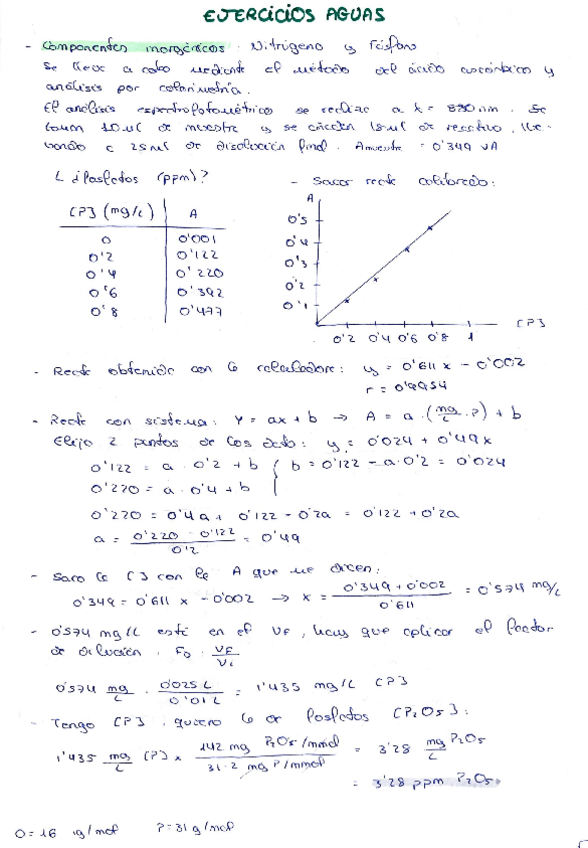 EJERCICIOS AGUAS
- Componentes inorgánicos. Nitrógeno y Fósforo
Se lleva a cabo mediante el método del ácido ascórbico y
análisis por colorimetría.
El análisis espectrofotométrico se realiza a λ = 880 nm. Se
toman 10 ml de muestra y se añaden 15 ml de reactivo, lle-
vando a 25 ml de disolución final. Amuestra = 0'349 UA
¿Fosfatos (ppm)?
- Sacar recta calibrado:
[P] (mg/L) A
0 0'001
0'2 0'122
0'4 0'220
0'6 0'392
0'8 0'477
A
0'5
0'4
0'3
0'2
0'1
0'2 0'4 0'6 0'8 1 [P]
- Recta obtenida con la calculadora: y = 0'611 x - 0'002
r = 0'9954
- Recta con sistema: Y = ax + b → A = a · (mg/L P) + b
Elijo 2 puntos de los dato: y = 0'024 + 0'49x
0'122 = a · 0'2 + b { b = 0'122 - a · 0'2 = 0'024
0'220 = a · 0'4 + b
0'220 = 0'4a + 0'122 - 0'2a = 0'122 + 0'2a
a = 0'220 - 0'122 / 0'2 = 0'49
- Saco la [ ] con la A que me dicen:
0'349 = 0'611 x - 0'002 → x = 0'349 + 0'002 / 0'611 = 0'574 mg/L
- 0'574 mg/L está en el VF, hay que aplicar el factor
de dilución. FD · VF / Vi
0'574 mg/L · 0'025 L / 0'01 L = 1'435 mg/L [P]
- Tengo [P], quiero la de fosfatos [P2O5]:
1'435 mg/L [P] × 142 mg P2O5/mmol / 31·2 mg P/mmol = 3'28 mg/L P2O5
= 3'28 ppm P2O5
O = 16 g/mol P = 31 g/mol